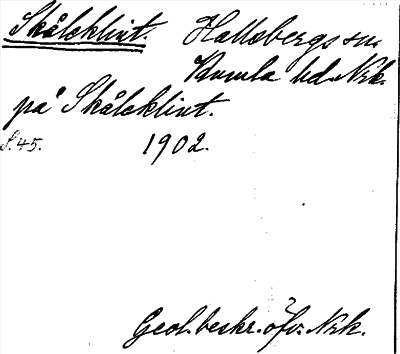 Skålcklint. Hallsbergs sn.
Kumla hd. Nrk.
på Skålcklint.
S. 45. 1902.
Geol. beskr. öfv. Nrk.